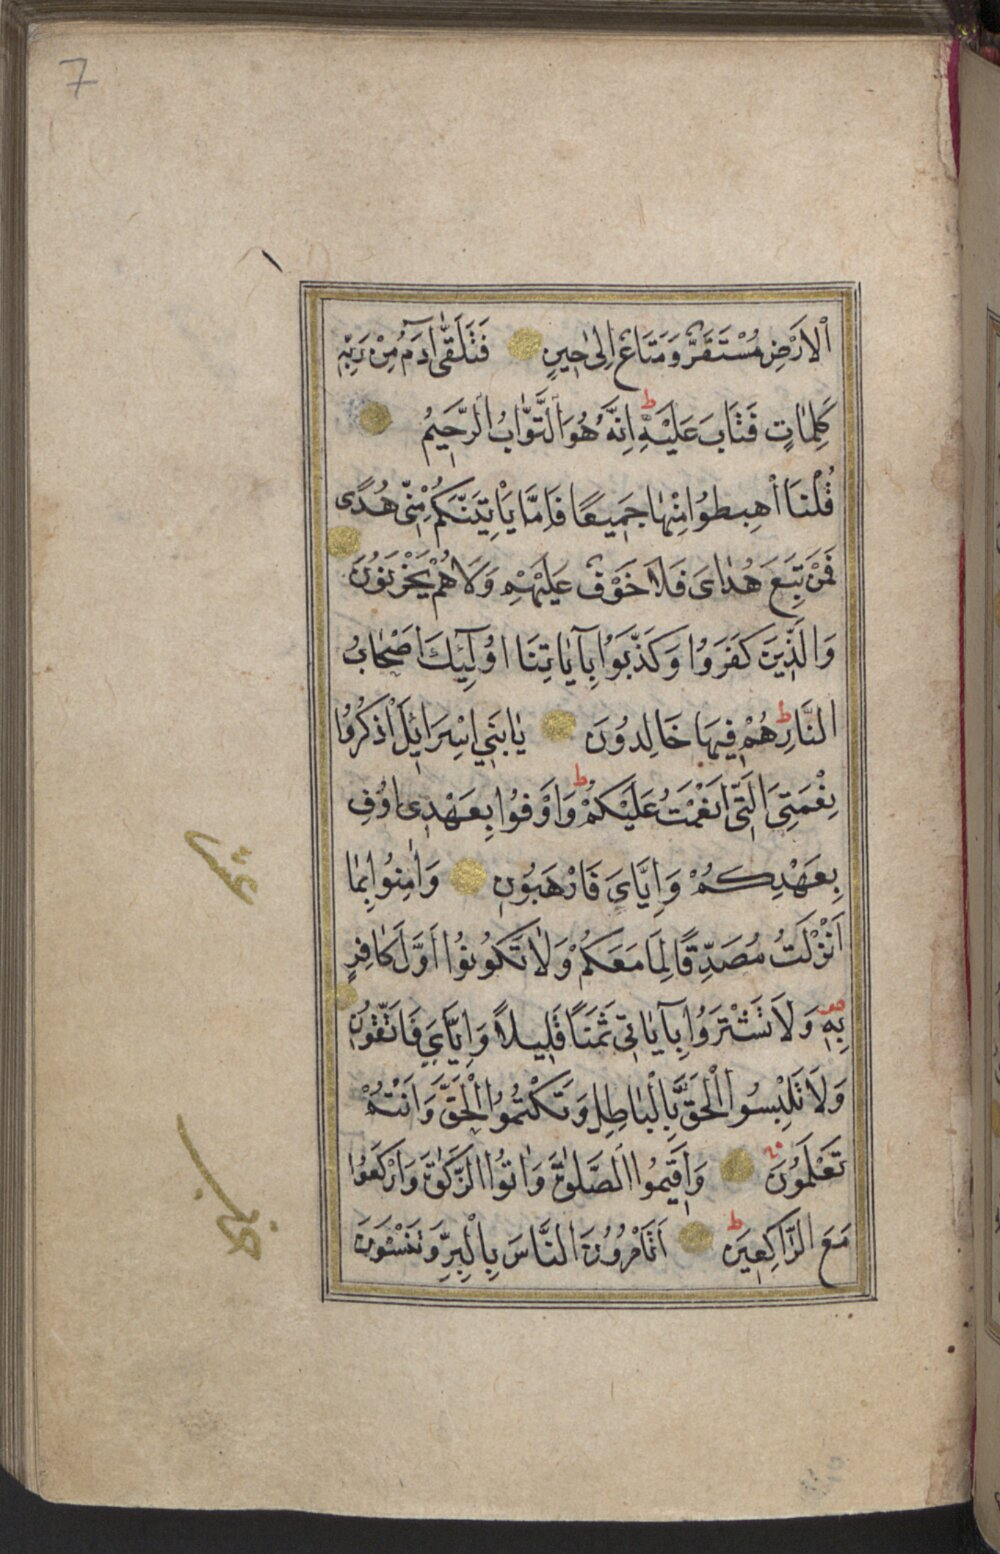 7
اْلاَرْضِ مُسْتَقَرٌّ وَمَتَاعٌ اِلٰى حٖينٍ فَتَلَقّٰٓى اٰدَمُ مِنْ رَبِّهٖ
كَلِمَاتٍ فَتَابَ عَلَيْهِ ط اِنَّهُ هُوَ التَّوَّابُ الرَّحٖيمُ
قُلْنَا اهْبِطُوا مِنْهَا جَمٖيعًا فَاِمَّا يَاْتِيَنَّكُمْ مِنّٖى هُدًى
فَمَنْ تَبِعَ هُدَاىَ فَلَا خَوْفٌ عَلَيْهِمْ وَلَا هُمْ يَحْزَنُونَ
وَالَّذٖينَ كَفَرُوا وَكَذَّبُوا بِاٰيَاتِنَا اُولٰٓئِكَ اَصْحَابُ
النَّارِ ط هُمْ فٖيهَا خَالِدُونَ يَابَنٖى اِسْرَائٖلَ اذْكُرُوا
نِعْمَتِىَ الَّتٖى اَنْعَمْتُ عَلَيْكُمْ ط وَاَوْفُوا بِعَهْدٖى اُوفِ
بِعَهْدِكُمْ وَاِيَّاىَ فَارْهَبُونِ وَاٰمِنُوا بِمَا
اَنْزَلْتُ مُصَدِّقًا لِمَا مَعَكُمْ وَلَا تَكُونُوا اَوَّلَ كَافِرٍ
بِهٖ ص وَلَا تَشْتَرُوا بِاٰيَاتٖى ثَمَنًا قَلٖيلًا وَاِيَّاىَ فَاتَّقُونِ
وَلَا تَلْبِسُوا الْحَقَّ بِالْبَاطِلِ وَتَكْتُمُوا الْحَقَّ وَاَنْتُمْ
تَعْلَمُونَ وَاَقٖيمُوا الصَّلٰوةَ وَاٰتُوا الزَّكٰوةَ وَارْكَعُوا
مَعَ الرَّاكِعٖينَ ط اَتَاْمُرُونَ النَّاسَ بِالْبِرِّ وَتَنْسَوْنَ